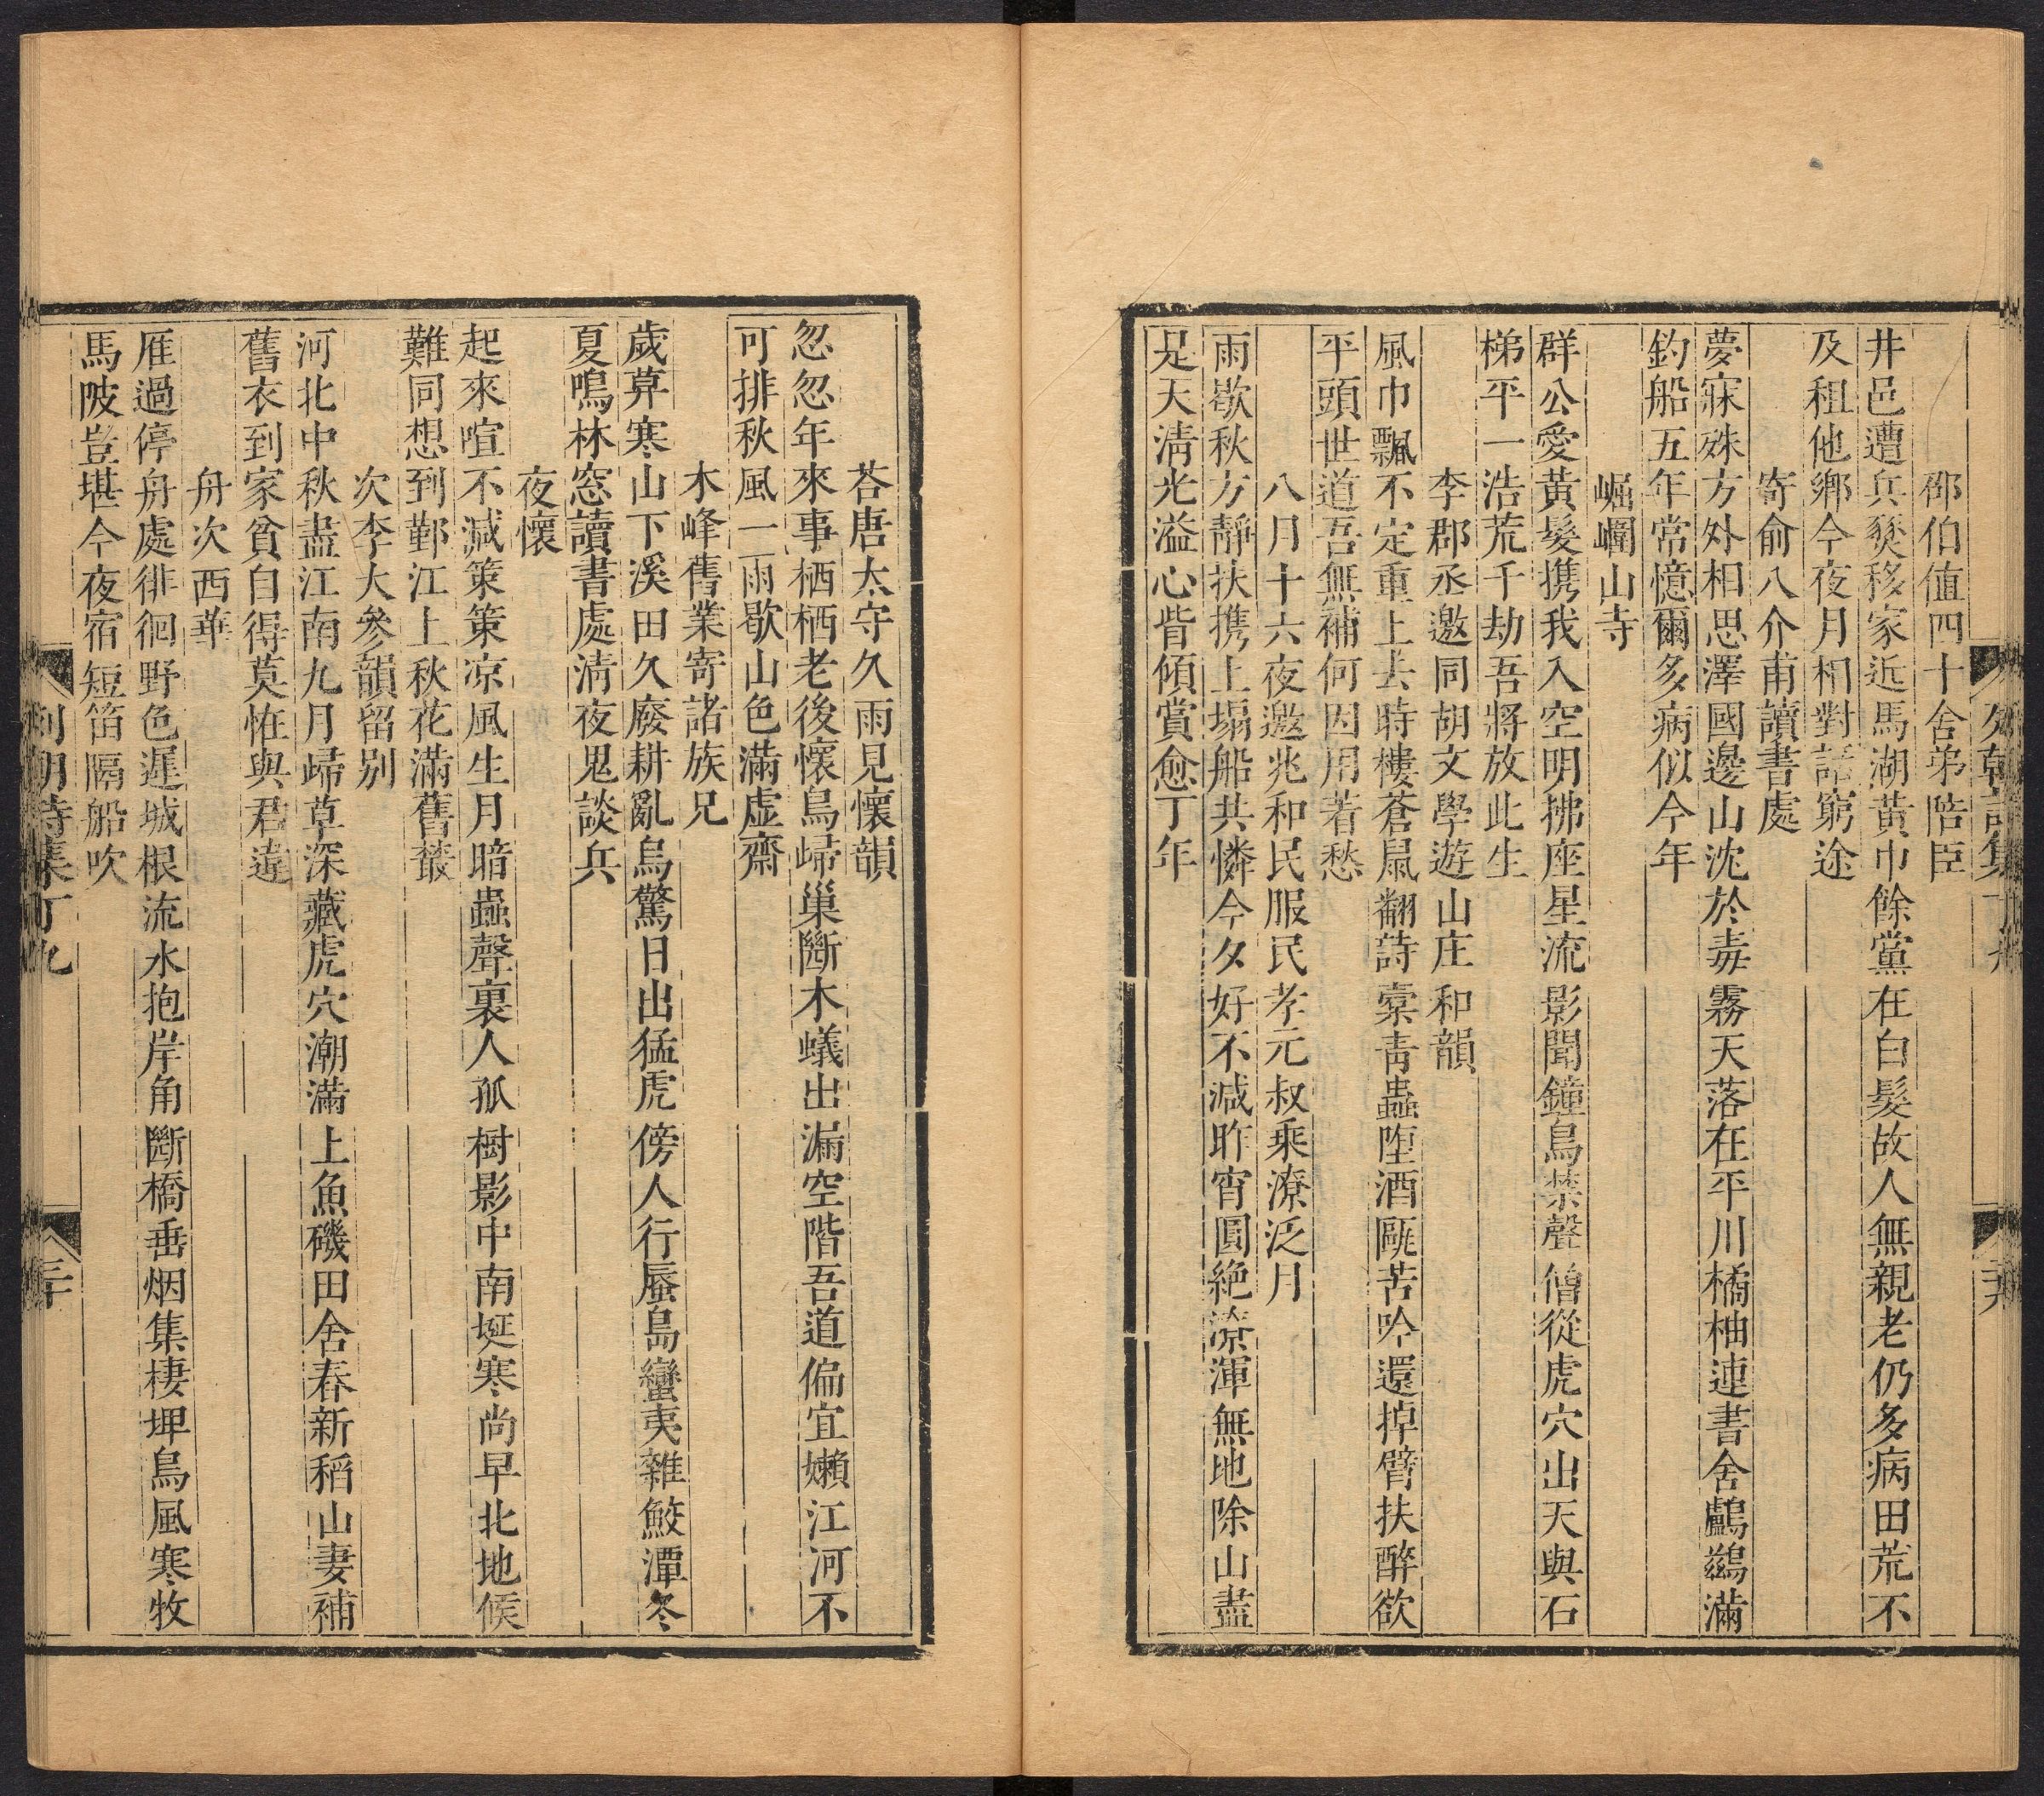 邵伯值四十舍弟陪臣
井邑遭兵燹移家近馬湖黃巾餘黨在白髮故人無親老仍多病田荒不
及租他鄉今夜月相對話窮途
寄俞八介甫讀書處
夢寐殊方外相思澤國邊山沈於毒霧天落在平川橘柚連書舍鸕鷀滿
釣船五年常憶爾多病似今年
崛𡼖山寺
群公愛黃髮携我入空明拂座星流影聞鐘鳥禁聲僧從虎穴出天與石
梯平一浩荒千劫吾將放此生
李郡丞邀同胡文學遊山庄和韻
風巾飄不定重上去時樓蒼鼠翻詩槖青蟲墮酒甌苦吟還掉臂扶醉欲
平頭世道吾無補何因用著愁
八月十六夜邀兆和民服民孝元叔乘凉泛月
雨歇秋方靜扶携上塌船共憐今夕好不減昨宵圓絶凉渾無地除山盡
是天淸光溢心眥傾賞愈丁年
列朝詩集丁九
荅唐太守久雨見懷韻
忽忽年來事栖栖老後懷烏歸巢斷木蟻出漏空階吾道偏宜嬾江河不
可排秋風一雨歇山色滿虚齋
木峰舊業寄諸族兄
歲莫寒山下溪田久廢耕亂烏驚日出猛虎傍人行蜃島蠻夷雜鮫潭冬
夏鳴林窓讀書處淸夜鬼談兵
夜懷
起來喧不減策策凉風生月暗蟲聲裏人孤樹影中南埏寒尚早北地候
難同想到鄞江上秋花滿舊叢
次李大參韻留别
河北中秋盡江南九月歸草深藏虎穴潮滿上魚磯田舍春新稻山妻補
舊衣到家貧自得莫恠與君違
舟次西華
雁過停舟處徘徊野色遲城根流水抱岸角斷橋垂烟集棲埤烏風寒牧
馬陂豈堪今夜宿短笛隔船吹
列朝詩集丁九
三十